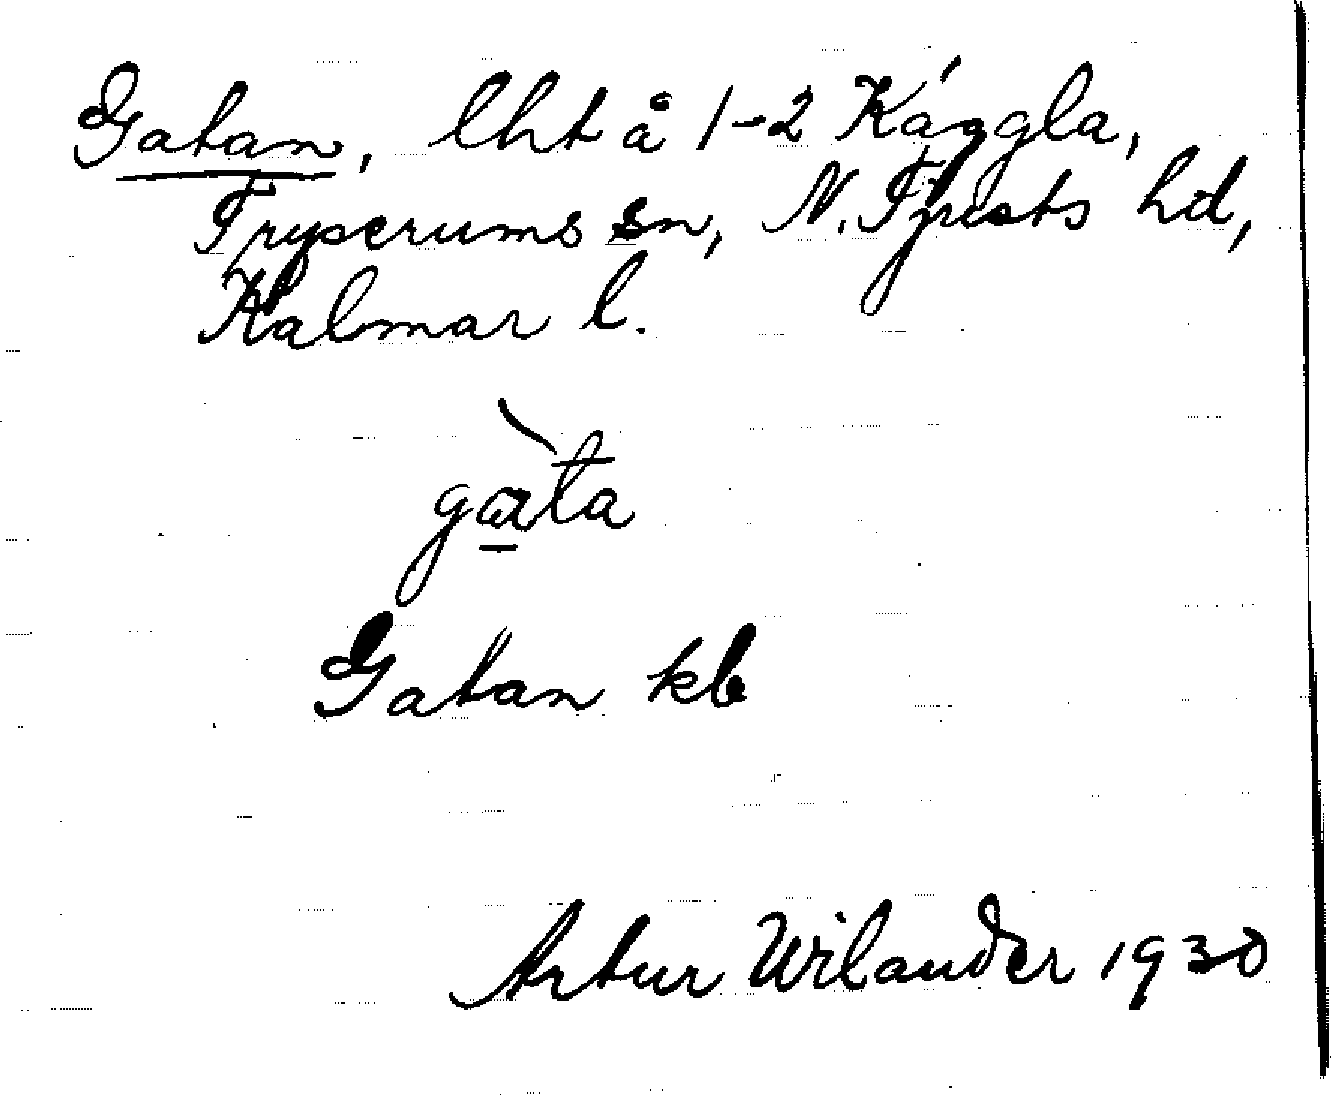 Gatan, lht å 1-2 Kággla,
Tryserums sn, N. Tjusts hd,
Kalmar l.
gàta
Gatan kb
Artur Wilander 1930